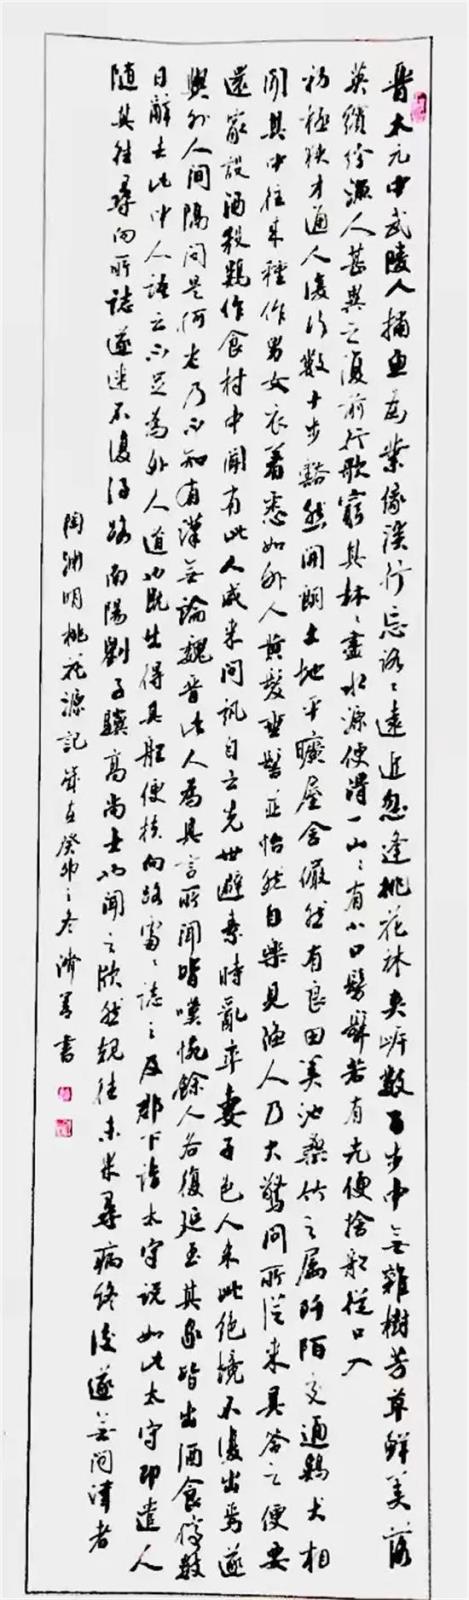 晉太元中武陵人捕魚為業緣溪行忘路〻遠近忽逢桃花林夾岸數百步中無雜樹芳草鮮美落
英繽紛漁人甚異之復前行欲窮其林〻盡水源便得一山〻有小口髣髴若有光便捨船從口入
初極狹才通人復行數十步豁然開朗土地平曠屋舍儼然有良田美池桑竹之屬阡陌交通鷄犬相
聞其中往來種作男女衣著悉如外人黃髮垂髫並怡然自樂見漁人乃大驚問所從來具答之便要
還家設酒殺鷄作食村中聞有此人咸來問訊自云先世避秦時亂率妻子邑人來此絕境不復出焉遂
與外人間隔問是何世乃不知有漢無論魏晉此人為具言所聞皆嘆惋餘人各復延至其家皆出酒食停數
日辭去此中人語云不足為外人道也既出得其船便扶向路處〻誌之及郡下詣太守說如此太守即遣人
隨其往尋向所誌遂迷不復得路南陽劉子驥高尚士也聞之欣然規往未果尋病終後遂無問津者
陶淵明桃花源記歲在癸卯之冬濟善書